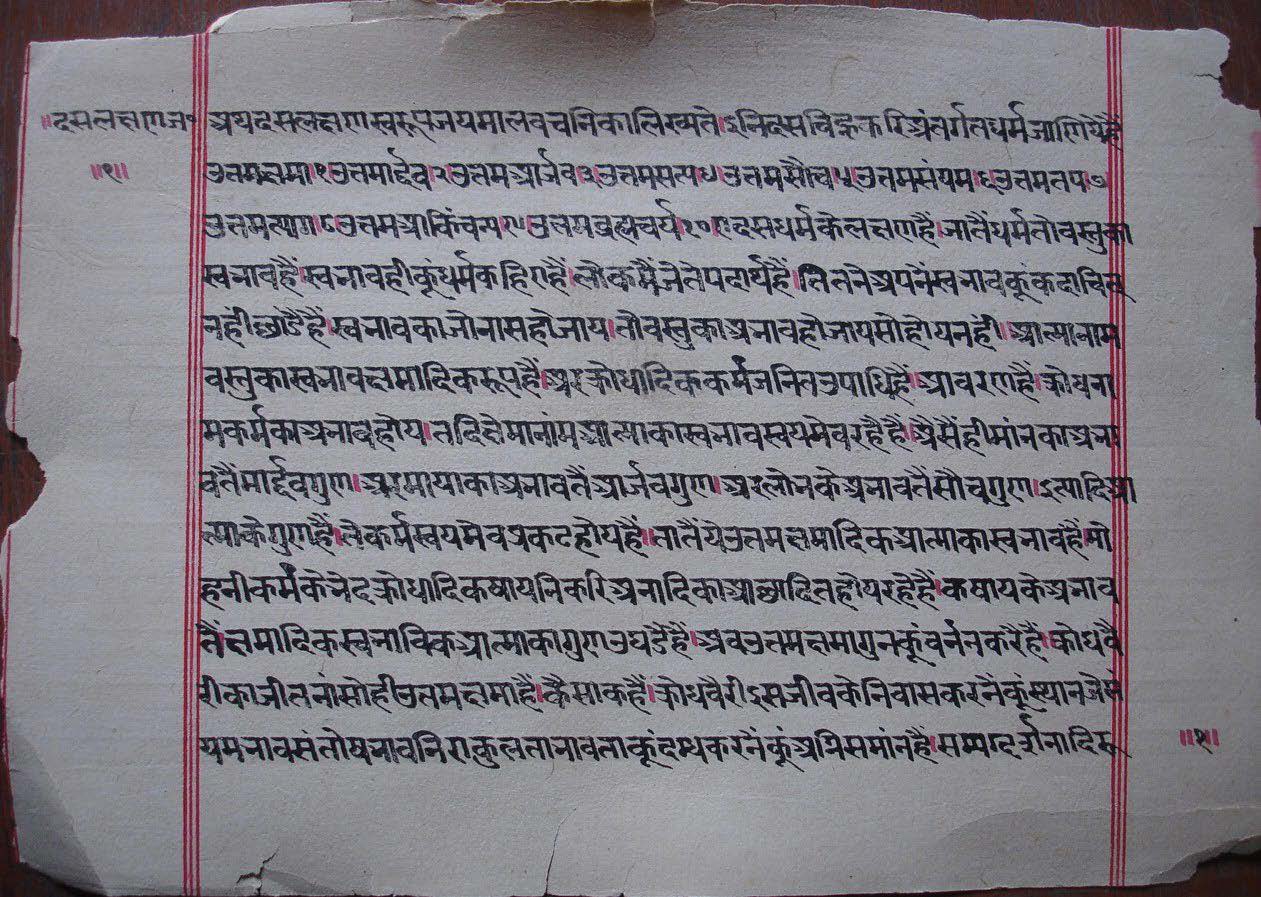 ॥दसलक्षणज॰
॥१॥
अथदसलक्षणस्वरूपजयमालवचनिकालिख्यते।इनिदसचिह्नकरिअंतर्गतधर्मजाणियेहैं
उत्तमक्षमा१उत्तमार्द्दव२उत्तमआर्जव३उत्तमसत्य४उत्तमसौच५उत्तमसंयम६उत्तमतप७
उत्तमत्याग८उत्तमआकिंचन्य९उत्तमब्रह्मचर्य१०ए दसधर्मकेलक्षणहैं।जातैंधर्मतोवस्तुका
स्वभावहैं।स्वभावहीकूंधर्मकहिएहैं।लोकमैंजेतेपदार्थहैं।तितनेअपनेंस्वभावकूंकदाचित्
नहींछांडैंहैं।स्वभावकाजोनासहोजाय।तौवस्तुकाअभावहोजायसोहोयनहीं।आत्मानाम
वस्तुकास्वभावक्षमादिकरूपहैं।अरक्रोधादिककर्मजनितउपाधिहैं।आवरणहैं।क्रोधना
मकर्मकाअभावहोय।तदिक्षेमानांमआत्माकास्वभावस्वयमेवरहैहैं।अैसैंहीमांनकाअभा
वतैंमार्द्दवगुण।अरमायाकाअभावतैंआर्जवगुण।अरलोभकेअभावतैंसौचगुण।इत्यादिआ
त्माकेगुणहैं।तेकर्मस्वयमेवप्रकटहोयहैं।तातैंयेउत्तमक्षमादिकआत्माकास्वभावहैं।मो
हनीकर्मकेभेदक्रोधादिककषायनिकरिअनादिकाआछादितहोयरहेहैं।कषायकेअभाव
तैंक्षमादिकस्वभाविकआत्माकागुणउघडैंहैं।अबउत्तमक्षमागुनकूंवर्ननकरैहैं।क्रोधवै
रीकाजीतनांसोहीउत्तमक्षमाहैं।कैसाकहैं।क्रोधवैरीइसजीवकेनिवासकरनेंकूंस्थानजेसं
यमभावसंतोषभावनिराकुलताभावताकूंदग्धकरनेंकूंअग्निसमांनहैं।सम्यग्दर्शनादिरू
॥१॥